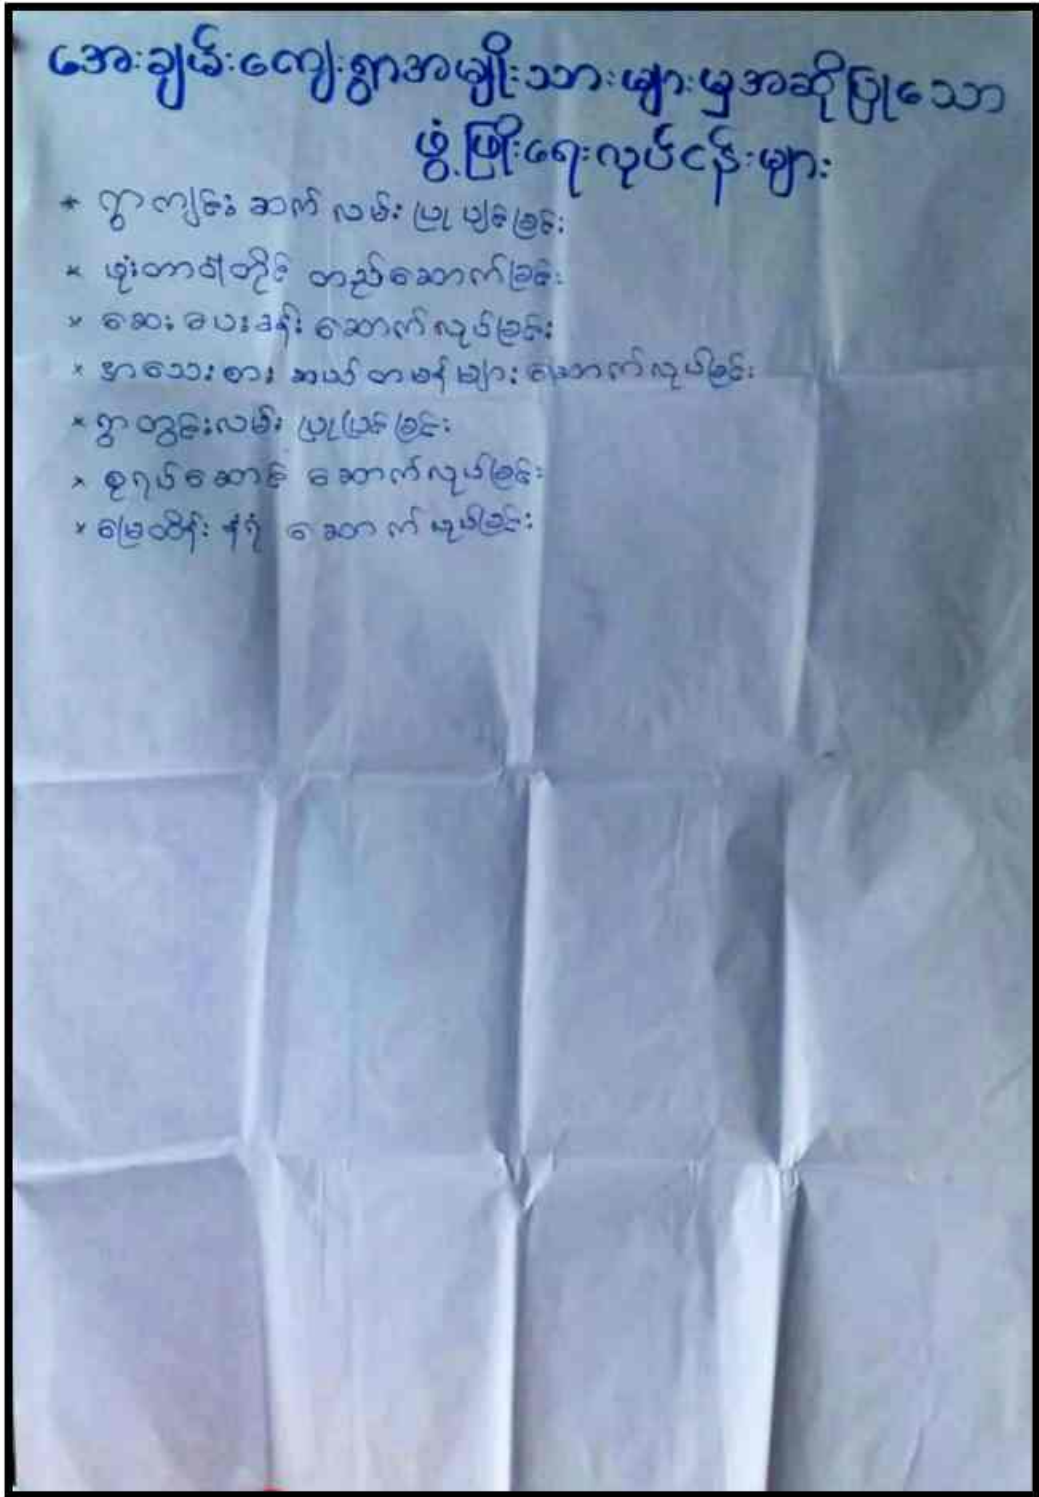 အေးချမ်းကျေးရွာအမျိုးသားများမှအဆိုပြုသော
ဖွံ့ဖြိုးရေးလုပ်ငန်းများ
* ရွာကျင်းဆက်လမ်းပြုပျင်ခြင်း
* ဖုံးတာဝါတိုင် တည်ဆောက်ခြင်း
* ဆေးပေးခန်း ဆောက်လုပ်ခြင်း
* နှာသေးစား ဆယ်တမန်များ ဆောက်လုပ်ခြင်း
* ရွာတွင်းလမ်း ပြုပြင်ခြင်း
* စုရပ်ဆောင် ဆောက်လုပ်ခြင်း
* မြေထိန်းနံရံ ဆောက်လုပ်ခြင်း